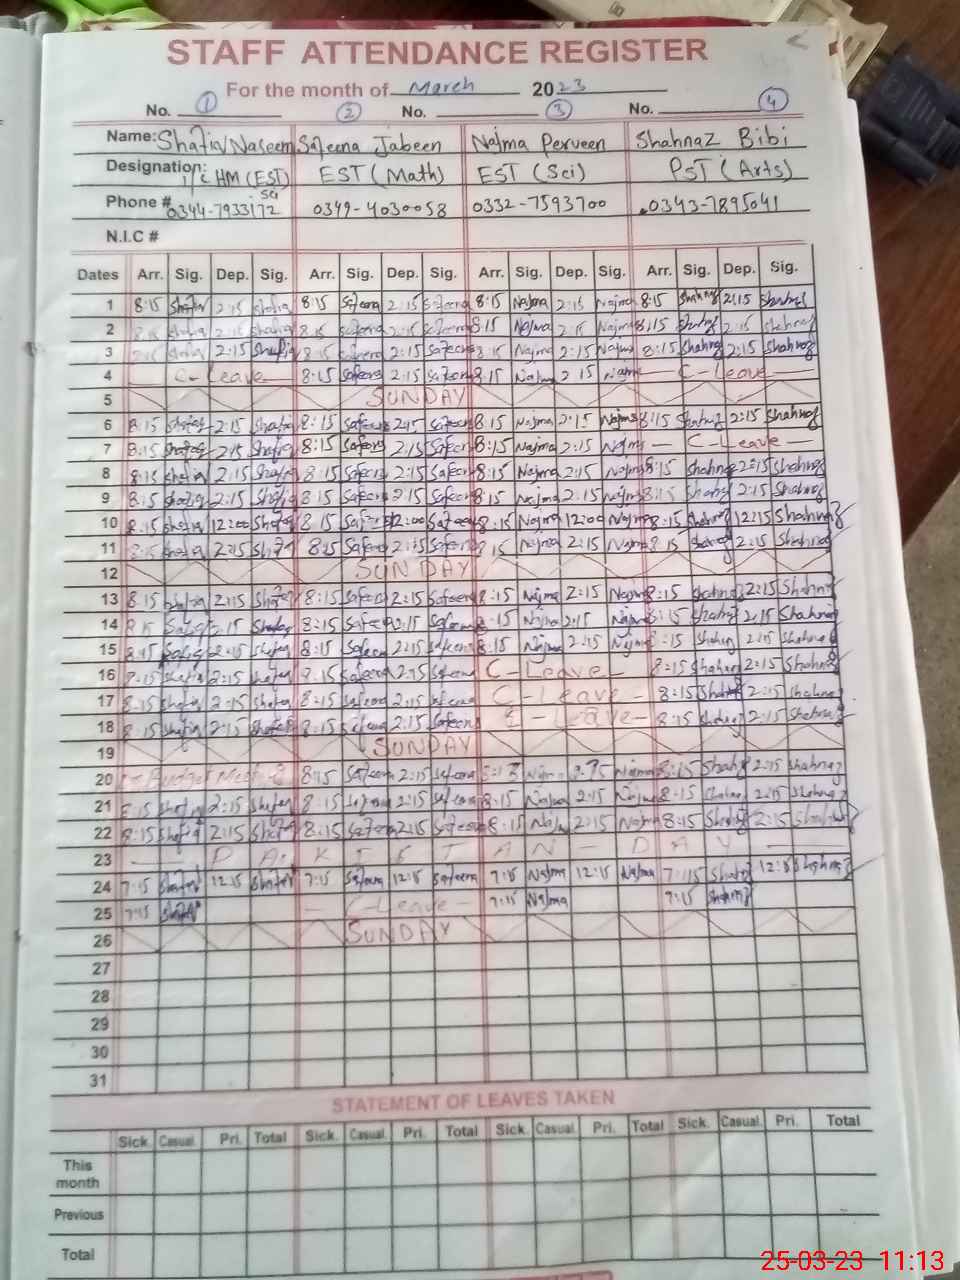 STAFF ATTENDANCE REGISTER
For the month of March 2023
No. 1 2 No. 3 No. 4
Name: Shafia Naseem Safeena Jabeen Najma Perveen Shahnaz Bibi
Designation: I/C HM (EST) Sci EST (Math) EST (Sci) PST (Arts)
Phone # 0344-7933172 0349-4030058 0332-7593700 0343-7895041
N.I.C #
Dates Arr. Sig. Dep. Sig. Arr. Sig. Dep. Sig. Arr. Sig. Dep. Sig. Arr. Sig. Dep. Sig.
1 8:15 Shafia 2:15 Shafia 8:15 Safeena 2:15 Safeena 8:15 Najma 2:15 Najma 8:15 Shahnaz 2:15 Shahnaz
2 8:15 Shafia 2:15 Shafia 8:15 Safeena 2:15 Safeena 8:15 Najma 2:15 Najma 8:15 Shahnaz 2:15 Shahnaz
3 8:15 Shafia 2:15 Shafia 8:15 Safeena 2:15 Safeena 8:15 Najma 2:15 Najma 8:15 Shahnaz 2:15 Shahnaz
4 C-Leave 8:15 Safeena 2:15 Safeena 8:15 Najma 2:15 Najma C-Leave
5 SUNDAY
6 8:15 Shafia 2:15 Shafia 8:15 Safeena 2:15 Safeena 8:15 Najma 2:15 Najma 8:15 Shahnaz 2:15 Shahnaz
7 8:15 Shafia 2:15 Shafia 8:15 Safeena 2:15 Safeena 8:15 Najma 2:15 Najma C-Leave
8 8:15 Shafia 2:15 Shafia 8:15 Safeena 2:15 Safeena 8:15 Najma 2:15 Najma 8:15 Shahnaz 2:15 Shahnaz
9 8:15 Shafia 2:15 Shafia 8:15 Safeena 2:15 Safeena 8:15 Najma 2:15 Najma 8:15 Shahnaz 2:15 Shahnaz
10 8:15 Shafia 12:00 Shafia 8:15 Safeena 12:00 Safeena 8:15 Najma 12:00 Najma 8:15 Shahnaz 12:15 Shahnaz
11 8:15 Shafia 2:15 Shafia 8:15 Safeena 2:15 Safeena 8:15 Najma 2:15 Najma 8:15 Shahnaz 2:15 Shahnaz
12 SUNDAY
13 8:15 Shafia 2:15 Shafia 8:15 Safeena 2:15 Safeena 8:15 Najma 2:15 Najma 8:15 Shahnaz 2:15 Shahnaz
14 8:15 Shafia 2:15 Shafia 8:15 Safeena 2:15 Safeena 8:15 Najma 2:15 Najma 8:15 Shahnaz 2:15 Shahnaz
15 8:15 Shafia 2:15 Shafia 8:15 Safeena 2:15 Safeena 8:15 Najma 2:15 Najma 8:15 Shahnaz 2:15 Shahnaz
16 8:15 Shafia 2:15 Shafia 8:15 Safeena 2:15 Safeena C-Leave 8:15 Shahnaz 2:15 Shahnaz
17 8:15 Shafia 2:15 Shafia 8:15 Safeena 2:15 Safeena C-Leave 8:15 Shahnaz 2:15 Shahnaz
18 8:15 Shafia 2:15 Shafia 8:15 Safeena 2:15 Safeena C-Leave 8:15 Shahnaz 2:15 Shahnaz
19 SUNDAY
20 Budget 8:15 Safeena 2:15 Safeena 8:15 Najma 2:15 Najma 8:15 Shahnaz 2:15 Shahnaz
21 8:15 Shafia 2:15 Shafia 8:15 Safeena 2:15 Safeena 8:15 Najma 2:15 Najma 8:15 Shahnaz 2:15 Shahnaz
22 8:15 Shafia 2:15 Shafia 8:15 Safeena 2:15 Safeena 8:15 Najma 2:15 Najma 8:15 Shahnaz 2:15 Shahnaz
23 PAKISTAN - DAY
24 7:15 Shafia 12:15 Shafia 7:15 Safeena 12:15 Safeena 7:15 Najma 12:15 Najma 7:15 Shahnaz 12:15 Shahnaz
25 7:15 Shafia C-Leave 7:15 Najma 7:15 Shahnaz
26 SUNDAY
27
28
29
30
31
STATEMENT OF LEAVES TAKEN
Sick. Casual. Pri. Total Sick. Casual. Pri. Total Sick. Casual. Pri. Total Sick. Casual. Pri. Total
This month
Previous
Total
25-03-23 11:13